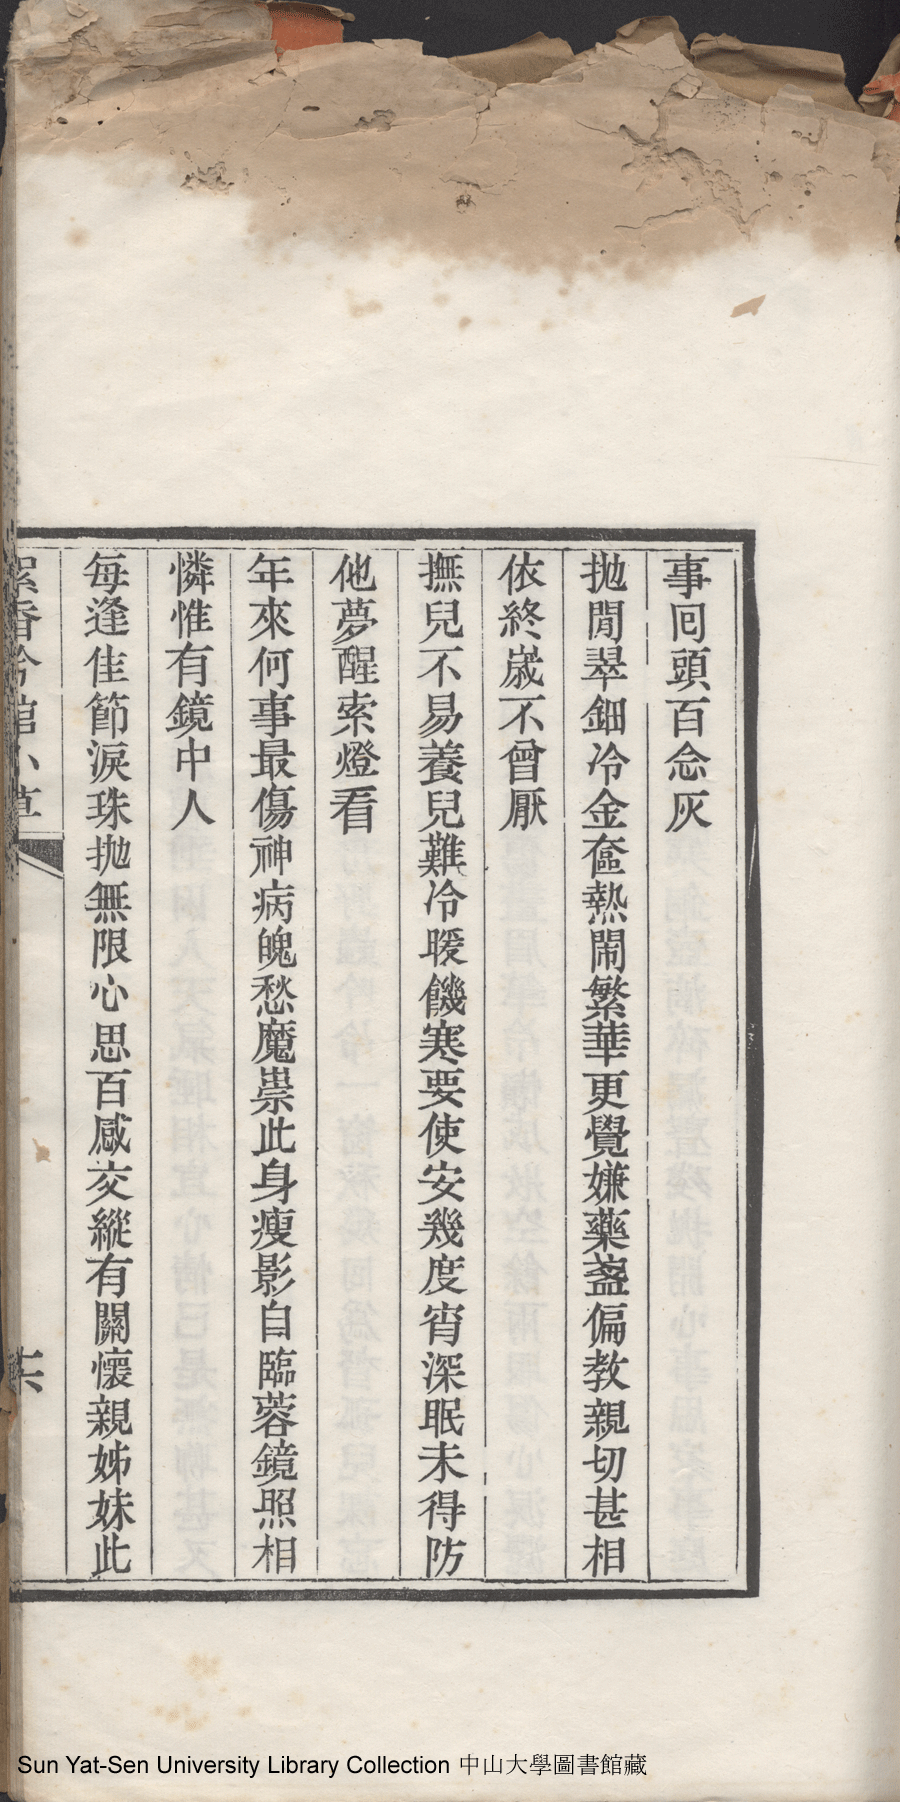 事囘頭百念灰
拋閒翠鈿冷金奩熱鬧繁華更覺嫌藥盞偏教親切甚相
依終嵗不曾厭
撫兒不易養兒難冷暖饑寒要使安幾度宵深眠未得防
他夢醒索燈看
年來何事最傷神病魄愁魔祟此身瘦影自臨蓉鏡照相
憐惟有鏡中人
每逢佳節淚珠拋無限心思百感交縱有關懷親姊妹此
絮香吟館小草
六
Sun Yat-Sen University Library Collection 中山大學圖書館藏